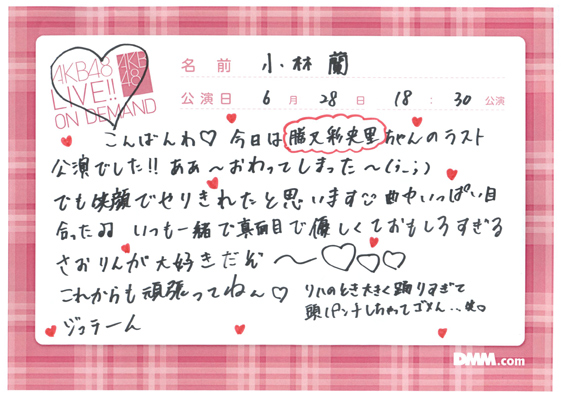 AKB48
LIVE!!
ON DEMAND
AKB
48
名 前 小林 蘭
公演日 6 月 28 日 18 : 30 公演
こんばんわ♡ 今日は勝又彩央里ちゃんのラスト
公演でした!! ああ〜おわってしまった〜(;_;)
でも笑顔でやりきれたと思います☺ 曲中いっぱい目
合った♫ いつも一緒で真面目で優しくておもしろすぎる
さおりんが大好きだぞ〜♡♡♡
これからも頑張ってねん♡
リハのとき大きく踊りすぎて
頭パンチしちゃってゴメん...笑
ジュテーん
DMM.com